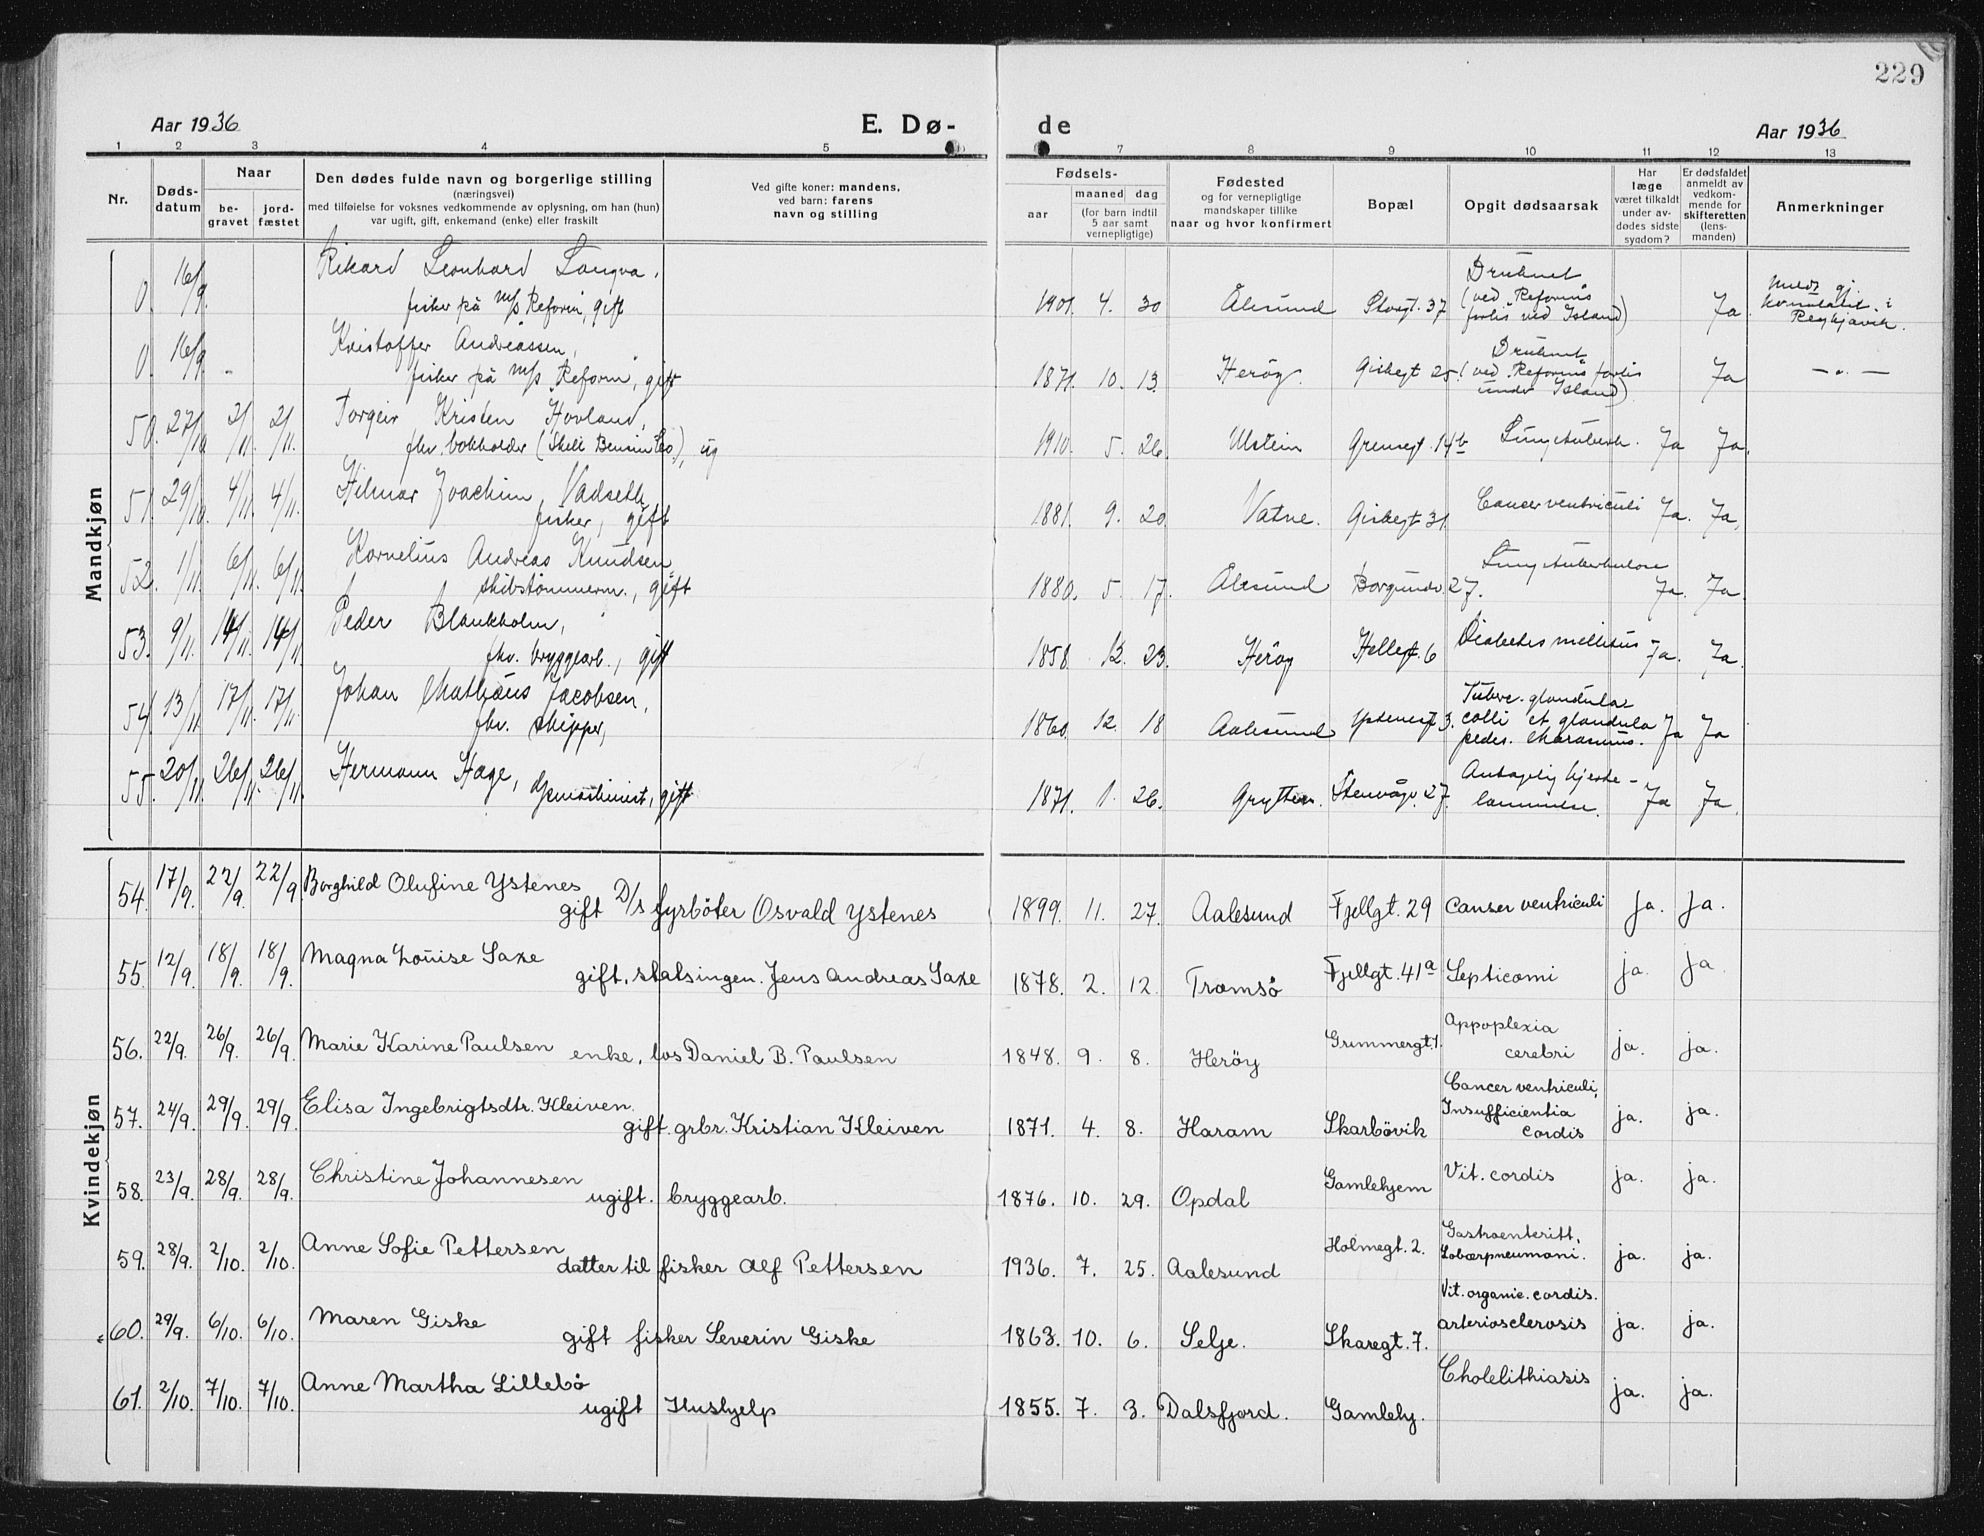 229
Aar 1936 E. Dø- de Aar 1936
1 2 3 4 5 7 8 9 10 11 12 13
Nr.
Døds-
datum
Naar
be-
gravet
jord-
fæstet
Den dødes fulde navn og borgerlige stilling
(næringsvei)
med tilføielse for voksnes vedkommende av oplysning, om han (hun)
var ugift, gift, enkemand (enke) eller fraskilt
Ved gifte koner: mandens,
ved barn: farens
navn og stilling
Fødsels-
aar
maaned dag
(for barn indtil
5 aar samt
vernepligtige)
Fødested
og for vernepligtige
mandskaper tillike
naar og hvor konfirmert
Bopæl
Opgit dødsaarsak
Har
læge
været tilkaldt
under av-
dødes sidste
sygdom?
Er dødsfaldet
anmeldt av
vedkom-
mende for
skifteretten
(lens-
manden)
Anmerkninger
Mandkjøn
0. 16/9. Rikard Leonhard Langva,
fisker på m/s "Reform", gift
1901. 4. 30 Ålesund Storgt. 37
Druknet
(ved "Reforms"
forlis ved Island)
Ja
Meldt gj.
konsulatet i
Reykjavik.
0. 16/9. Kristoffer Andreassen,
fisker på m/s "Reform", gift
1871. 10. 13. Herøy. Giskegt 25.
Druknet
(ved "Reforms" forlis
under Island)
Ja — " —
50. 27/10 2/11. 2/11. Torgeir Kristen Hovland,
fhv. bokholder (Shell Bensin Co.), ug
1910. 5. 26. Ulstein Grensegt. 14b Lungetuberk. Ja Ja.
51. 29/10. 4/11. 4/11. Hilmar Joachim Vadseth
fisker, gift
1881. 9. 20 Vatne. Giskegt 31. Cancer ventriculi Ja. Ja,
52. 1/11. 6/11. 6/11. Kornelius Andreas Knudsen,
skibstømmerm., gift
1880. 5. 17. Ålesund Borgundv. 27. Lungetuberkulose Ja. Ja.
53. 9/11. 14/11. 14/11 Peder Blankholm,
fhv. bryggearb., gift
1858 12. 23. Herøy Hellegt. 6 Diabetes mellitus Ja. Ja.
54. 13/11 17/11. 17/11. Johan Mathæus Jacobsen,
fhv. skipper,
1860. 12. 18 Aalesund 3.
Tuberc. glandula
colli et glandula
pedes. Marasmus.
Ja Ja
55. 20/11 26/11. 26/11. Hermann Hage, gift
1871. 1. 26. Grytten. Stenvågv. 27.
Antagelig hjerte-
lammelse.
Ja Ja.
Kvindekjøn
54. 17/9. 22/9. 22/9. Borghild Olufine Ystenes
gift D/s fyrbøter Osvald Ystenes
1899. 11. 27. Aalesund Fjellgt. 29 Canser ventriculi ja. ja.
55. 12/9. 18/9. 18/9. Magna Louise Saxe
gift, statsingen. Jens Andreas Saxe
1878. 2. 12. Tromsø Fjellgt. 41a Septicæmi ja. ja.
56. 22/9. 26/9. 26/9. Marie Karine Paulsen
enke, los Daniel B. Paulsen
1848. 9. 8. Herøy Grimmergt. 1.
Appoplexia
cerebri
ja. ja.
57. 24/9. 29/9. 29/9. Elisa Ingebrigtsdtr. Kleiven
gift. grbr. Kristian Kleiven
1871. 4. 8. Haram Skarbövik
Cancer ventriculi,
Insufficientia
cordis
ja. ja.
58. 23/9. 28/9. 28/9. Christine Johannesen
ugift. bryggearb.
1876. 10. 29. Opdal Gamlehjem Vit. cordis ja. ja.
59. 28/9. 2/10. 2/10. Anne Sofie Pettersen
datter til fisker Alf Pettersen
1936. 7. 25. Aalesund Holmegt. 2.
Gastroenteritt,
Lobærpneumoni.
ja. ja.
60. 29/9. 6/10. 6/10. Maren Giske
gift fisker Severin Giske
1863. 10. 6. Selje. Skaregt. 7.
Vit. organic. cordis.
arteriosclerosis
ja. ja.
61. 2/10. 7/10. 7/10. Anne Martha Lillebö
ugift Hushjelp
1855. 7. 3. Dalsfjord. Gamlehj. Cholelithiasis ja. ja.